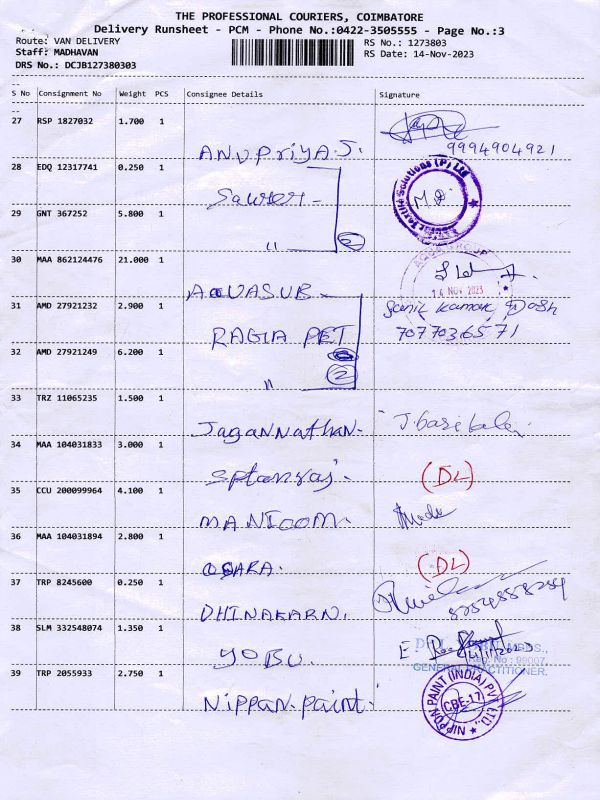 THE PROFESSIONAL COURIERS, COIMBATORE
Delivery Runsheet - PCM - Phone No.:0422-3505555 - Page No.:3
Route: VAN DELIVERY RS No.: 1273803
Staff: MADHAVAN RS Date: 14-Nov-2023
DRS No.: DCJB127380303
S No Consignment No Weight PCS Consignee Details Signature
27 RSP 1827032 1.700 1
ANUPRIYA.S. 9994904921
28 EDQ 12317741 0.250 1
Saurer - M.D.
29 GNT 367252 5.800 1
" 2
30 MAA 862124476 21.000 1
AQUA GROUP
14 NOV 2023
AQUASUB -
31 AMD 27921232 2.900 1
RAGIA PET 7077036571
32 AMD 27921249 6.200 1
" 2
33 TRZ 11065235 1.500 1
Jagannathan.
34 MAA 104031833 3.000 1
(DL)
35 CCU 200099964 4.100 1
MANICOM.
36 MAA 104031894 2.800 1
OSARA. (DL)
37 TRP 8245600 0.250 1
DHINAKARN.
38 SLM 332548074 1.350 1
YOBU.
Reg. No : 99007
GENERAL PRACTITIONER.
39 TRP 2055933 2.750 1
Nippan.paint.
NIPPON PAINT (INDIA) PVT. LTD.,
CBE-17